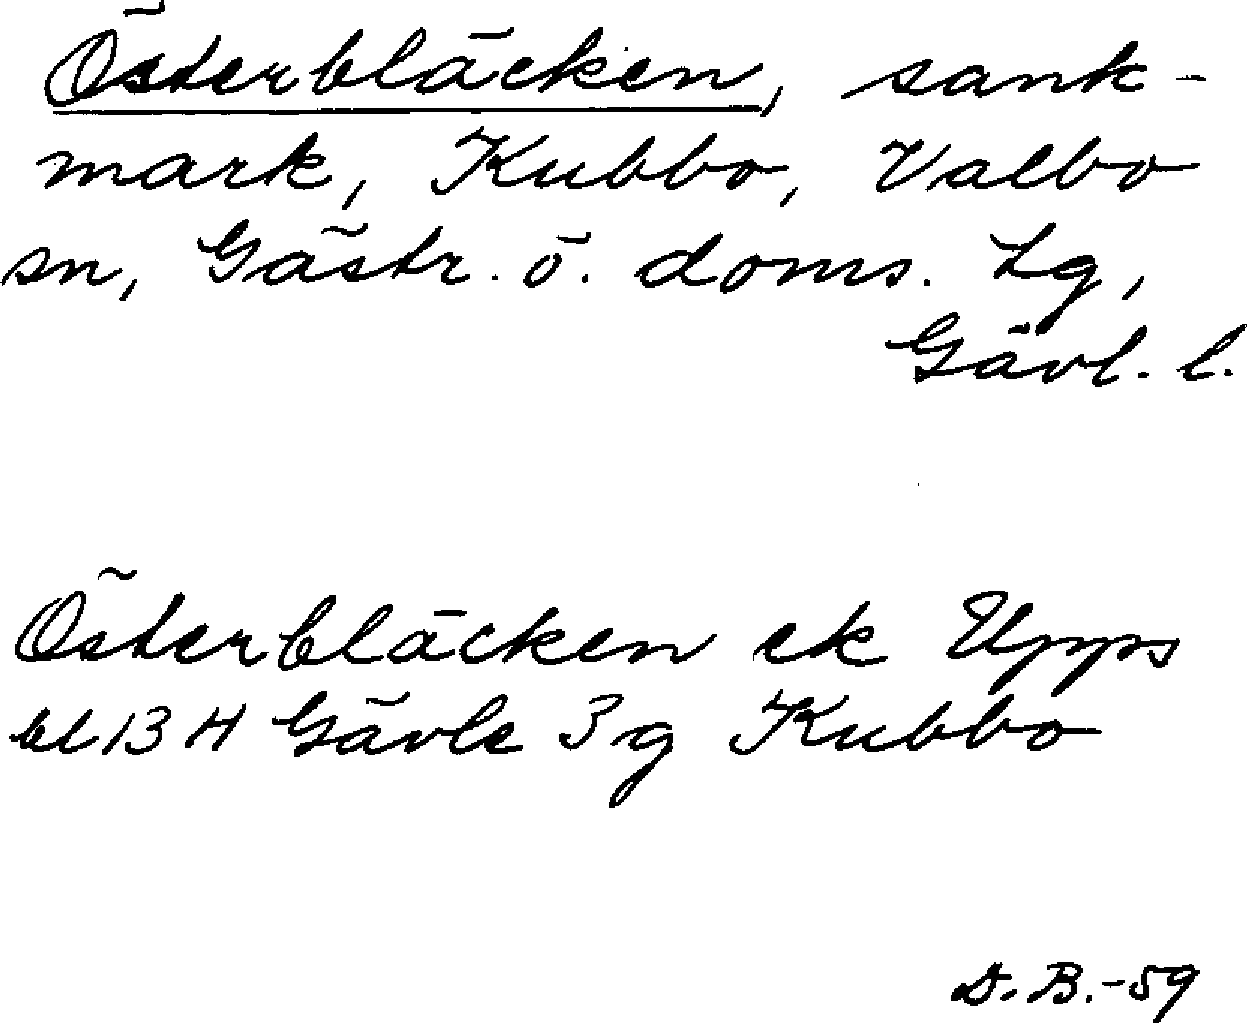 Österbläcken, sank-
mark, Kubbo, Valbo
sn, Gästr. ö. doms. Lg,
Gävl. l.
Österbläcken ek Upps
bl 13 H Gävle 3 g Kubbo
D. B. -59